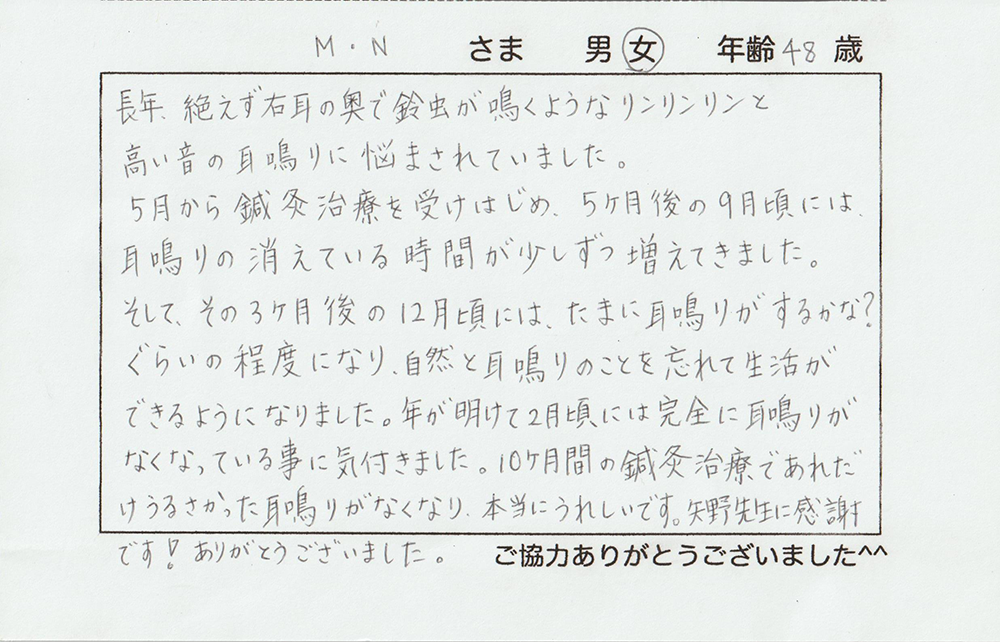 M・N さま 男 女 年齢 48 歳
長年、絶えず右耳の奥で鈴虫が鳴くようなリンリンリンと
高い音の耳鳴りに悩まされていました。
5月から鍼灸治療を受けはじめ、5ケ月後の9月頃には、
耳鳴りの消えている時間が少しずつ増えてきました。
そして、その3ケ月後の12月頃には、たまに耳鳴りがするかな?
ぐらいの程度になり、自然と耳鳴りのことを忘れて生活が
できるようになりました。年が明けて2月頃には完全に耳鳴りが
なくなっている事に気付きました。10ケ月間の鍼灸治療であれだ
けうるさかった耳鳴りがなくなり、本当にうれしいです。矢野先生に感謝
です!ありがとうございました。 ご協力ありがとうございました^^